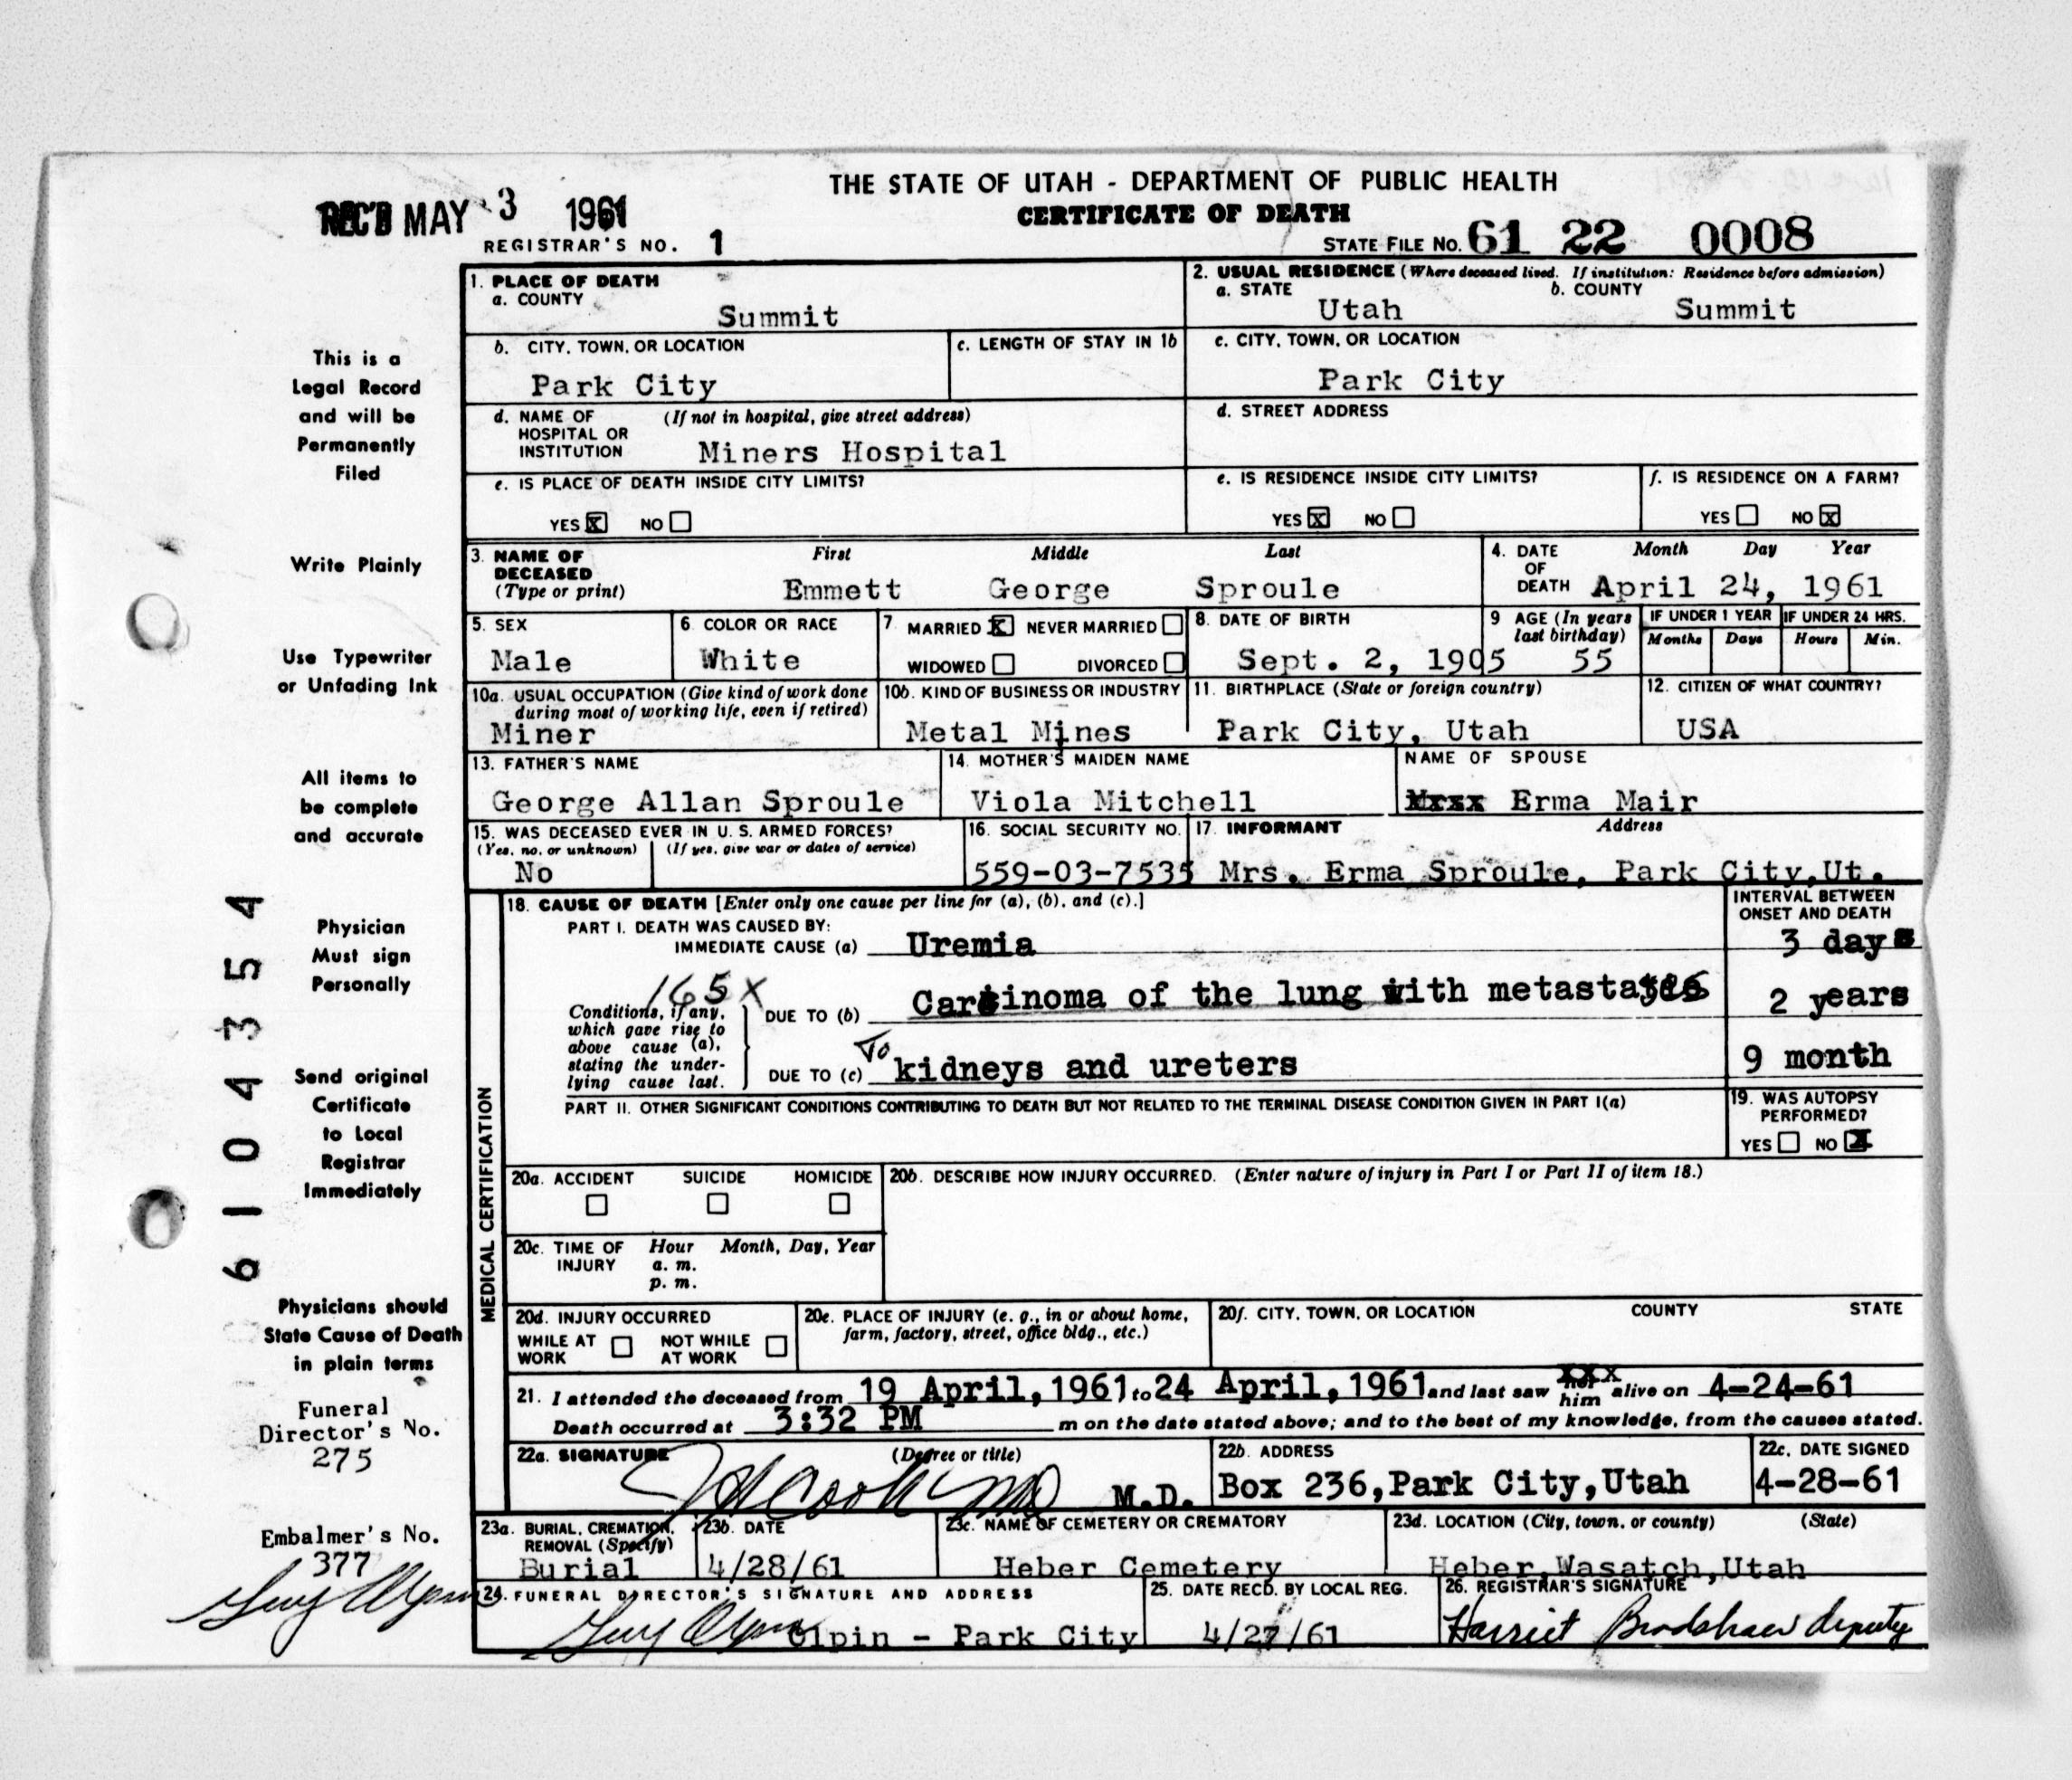 THE STATE OF UTAH - DEPARTMENT OF PUBLIC HEALTH
CERTIFICATE OF DEATH
REC'D MAY 3 1961
REGISTRAR'S NO. 1
STATE FILE NO. 61 22 0008
This is a
Legal Record
and will be
Permanently
Filed
Write Plainly
Use Typewriter
or Unfading Ink
All items to
be complete
and accurate
Physician
Must sign
Personally
Send original
Certificate
to Local
Registrar
Immediately
Physicians should
State Cause of Death
in plain terms
Funeral
Director's No.
275
Embalmer's No.
377
61 04354
1. PLACE OF DEATH
a. COUNTY
Summit
2. USUAL RESIDENCE (Where deceased lived. If institution: Residence before admission)
a. STATE b. COUNTY
Utah Summit
b. CITY, TOWN, OR LOCATION
Park City
c. LENGTH OF STAY IN 1b
c. CITY, TOWN, OR LOCATION
Park City
d. NAME OF (If not in hospital, give street address)
HOSPITAL OR
INSTITUTION Miners Hospital
d. STREET ADDRESS
e. IS PLACE OF DEATH INSIDE CITY LIMITS?
YES X NO
e. IS RESIDENCE INSIDE CITY LIMITS?
YES X NO
f. IS RESIDENCE ON A FARM?
YES NO X
3. NAME OF First Middle Last
DECEASED
(Type or print) Emmett George Sproule
4. DATE Month Day Year
OF
DEATH April 24, 1961
5. SEX
Male
6. COLOR OR RACE
White
7 MARRIED X NEVER MARRIED
WIDOWED DIVORCED
8. DATE OF BIRTH
Sept. 2, 1905
9 AGE (In years
last birthday)
55
IF UNDER 1 YEAR IF UNDER 24 HRS.
Months Days Hours Min.
10a. USUAL OCCUPATION (Give kind of work done
during most of working life, even if retired)
Miner
10b. KIND OF BUSINESS OR INDUSTRY
Metal Mines
11. BIRTHPLACE (State or foreign country)
Park City, Utah
12. CITIZEN OF WHAT COUNTRY?
USA
13. FATHER'S NAME
George Allan Sproule
14. MOTHER'S MAIDEN NAME
Viola Mitchell
NAME OF SPOUSE
Erma Mair
15. WAS DECEASED EVER IN U. S. ARMED FORCES?
(Yes, no, or unknown) (If yes, give war or dates of service)
No
16. SOCIAL SECURITY NO.
559-03-7535
17. INFORMANT Address
Mrs. Erma Sproule, Park City,Ut.
MEDICAL CERTIFICATION
18. CAUSE OF DEATH [Enter only one cause per line for (a), (b), and (c).]
INTERVAL BETWEEN
ONSET AND DEATH
PART I. DEATH WAS CAUSED BY:
IMMEDIATE CAUSE (a) Uremia 3 days
165X
Conditions, if any,
which gave rise to
above cause (a),
stating the under-
lying cause last.
DUE TO (b) Carcinoma of the lung with metastases 2 years
To
DUE TO (c) kidneys and ureters 9 month
PART II. OTHER SIGNIFICANT CONDITIONS CONTRIBUTING TO DEATH BUT NOT RELATED TO THE TERMINAL DISEASE CONDITION GIVEN IN PART I(a)
19. WAS AUTOPSY
PERFORMED?
YES NO X
20a. ACCIDENT SUICIDE HOMICIDE
20b. DESCRIBE HOW INJURY OCCURRED. (Enter nature of injury in Part I or Part II of item 18.)
20c. TIME OF Hour Month, Day, Year
INJURY a. m.
p. m.
20d. INJURY OCCURRED
WHILE AT NOT WHILE
WORK AT WORK
20e. PLACE OF INJURY (e. g., in or about home,
farm, factory, street, office bldg., etc.)
20f. CITY, TOWN, OR LOCATION COUNTY STATE
21. I attended the deceased from 19 April,1961 to 24 April,1961 and last saw her xxx him alive on 4-24-61
Death occurred at 3:32 PM m on the date stated above; and to the best of my knowledge, from the causes stated.
22a. SIGNATURE (Degree or title)
Cook MD M.D.
22b. ADDRESS
Box 236,Park City,Utah
22c. DATE SIGNED
4-28-61
23a. BURIAL, CREMATION,
REMOVAL (Specify)
Burial
23b. DATE
4/28/61
23c. NAME OF CEMETERY OR CREMATORY
Heber Cemetery
23d. LOCATION (City, town, or county) (State)
Heber,Wasatch,Utah
24. FUNERAL DIRECTOR'S SIGNATURE AND ADDRESS
Olpin - Park City
25. DATE RECD. BY LOCAL REG.
4/27/61
26. REGISTRAR'S SIGNATURE
Harriet Bradshaw deputy